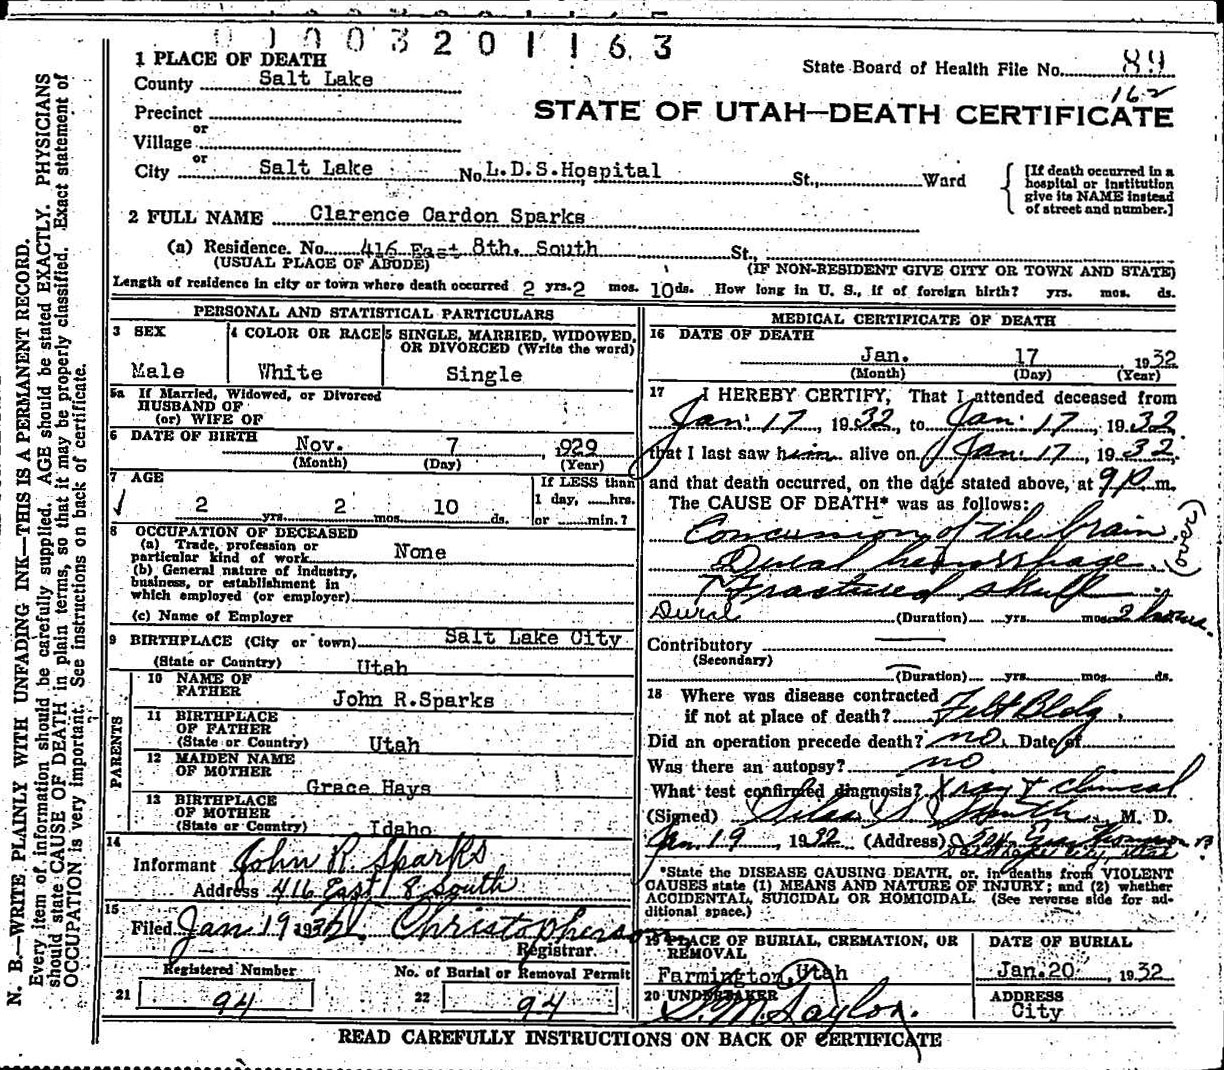 01003201163
1 PLACE OF DEATH
County Salt Lake
State Board of Health File No. 89
162
Precinct
or
Village
or
STATE OF UTAH—DEATH CERTIFICATE
City Salt Lake No. L.D.S.Hospital St., Ward
[If death occurred in a hospital or institution give its NAME instead of street and number.]
2 FULL NAME Clarence Cardon Sparks
(a) Residence. No. 416 East 8th. South St.,
(USUAL PLACE OF ABODE) (IF NON-RESIDENT GIVE CITY OR TOWN AND STATE)
Length of residence in city or town where death occurred 2 yrs. 2 mos. 10 ds. How long in U. S., if of foreign birth? yrs. mos. ds.
PERSONAL AND STATISTICAL PARTICULARS
3 SEX
Male
4 COLOR OR RACE
White
5 SINGLE, MARRIED, WIDOWED, OR DIVORCED (Write the word)
Single
5a If Married, Widowed, or Divorced
HUSBAND OF
(or) WIFE OF
6 DATE OF BIRTH Nov. 7 1929
(Month) (Day) (Year)
7 AGE
2 yrs. 2 mos. 10 ds.
If LESS than
1 day, hrs.
or min.?
8 OCCUPATION OF DECEASED
(a) Trade, profession or
particular kind of work None
(b) General nature of industry,
business, or establishment in
which employed (or employer)
(c) Name of Employer
9 BIRTHPLACE (City or town) Salt Lake City
(State or Country) Utah
PARENTS
10 NAME OF
FATHER John R.Sparks
11 BIRTHPLACE
OF FATHER
(State or Country) Utah
12 MAIDEN NAME
OF MOTHER
Grace Hays
13 BIRTHPLACE
OF MOTHER
(State or Country) Idaho
14
Informant John R. Sparks
Address 416 East 8 South
15
Filed Jan 19 1932 Christopherson
Registrar
Registered Number
21 94
No. of Burial or Removal Permit
22 94
MEDICAL CERTIFICATE OF DEATH
16 DATE OF DEATH
Jan. 17 1932
(Month) (Day) (Year)
17 I HEREBY CERTIFY, That I attended deceased from
Jan. 17, 1932, to Jan. 17, 1932.
that I last saw him alive on Jan. 17, 1932.
and that death occurred, on the date stated above, at 9 p m.
The CAUSE OF DEATH* was as follows:
Concussion of the brain
(over)
Dural hemorrhage.
Fractured skull
Dural (Duration) yrs. mos. 2 hours.
Contributory
(Secondary)
(Duration) yrs. mos. ds.
18 Where was disease contracted
if not at place of death? Felt Bldg.
Did an operation precede death? no. Date of
Was there an autopsy? no
What test confirmed diagnosis? Xray & Clinical
(Signed) Silas S. Smith M. D.
Jan. 19 1932 (Address)
Salt Lake City, Utah
*State the DISEASE CAUSING DEATH, or, in deaths from VIOLENT
CAUSES state (1) MEANS AND NATURE OF INJURY; and (2) whether
ACCIDENTAL, SUICIDAL OR HOMICIDAL. (See reverse side for ad-
ditional space.)
19 PLACE OF BURIAL, CREMATION, OR
REMOVAL
Farmington, Utah
DATE OF BURIAL
Jan. 20, 1932
20 UNDERTAKER
S.M. Taylor.
ADDRESS
City
READ CAREFULLY INSTRUCTIONS ON BACK OF CERTIFICATE
N. B.—WRITE PLAINLY WITH UNFADING INK—THIS IS A PERMANENT RECORD.
Every item of information should be carefully supplied. AGE should be stated EXACTLY. PHYSICIANS
should state CAUSE OF DEATH in plain terms, so that it may be properly classified. Exact statement of
OCCUPATION is very important. See instructions on back of certificate.